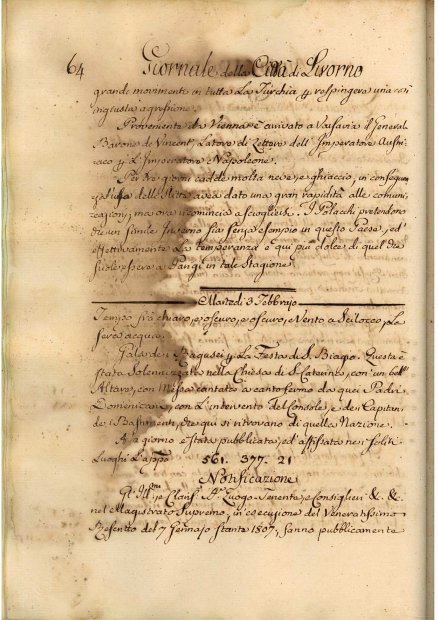 64 Giornale della Città di Livorno
grande movimento in tutta la Turchia p respingere una con
ingiusta agressione.
Proveniente da Vienna è arrivato a Varsavia il General
Barone de Vincent, Latore di Lettere dell' Imperatore Aust
riaco p L'Imperatore Napoleone.
Per tre giorni cadde molta neve, e ghiaccio, in conseguen
za l'uso delle Slitte avea dato una gran rapidità alle comuni
cazioni, ma ora incomincia a sciogliersi. I Polacchi pretendono
che un simile Inverno sia senza esempio in questo Paese, ed
effettivamente La temperanza è qui più dolce di quel che
suole essere a Parigi in tale Stagione.
Martedì 3 Febbrajo
Tempo frà chiaro, e oscuro, e oscuro, e Vento a Scilocco, e la
sera acqua.
Gala de Ragusei p La Festa di S. Biagio. Questa è
stata Solennizzata nella Chiesa di S. Caterina, con un bell'
Altare, con Messa cantata a canto fermo da quei Padri
Domenicani, con L'intervento del Console, e dei Capitani
de Bastimenti, che qui si ritrovano di quella Nazione.
A giorno è stata pubblicata, ed affissata nei soliti
Luoghi L'app.
561. 377. 21
Notificazione
Gl' Ill.mi e Clariss. Luogo Tenente, e Consiglieri &. &.
nel Magistrato Supremo, in esecuzione del Veneratissimo
Rescritto del 7 Gennajo stante 1807, fanno pubblicamente